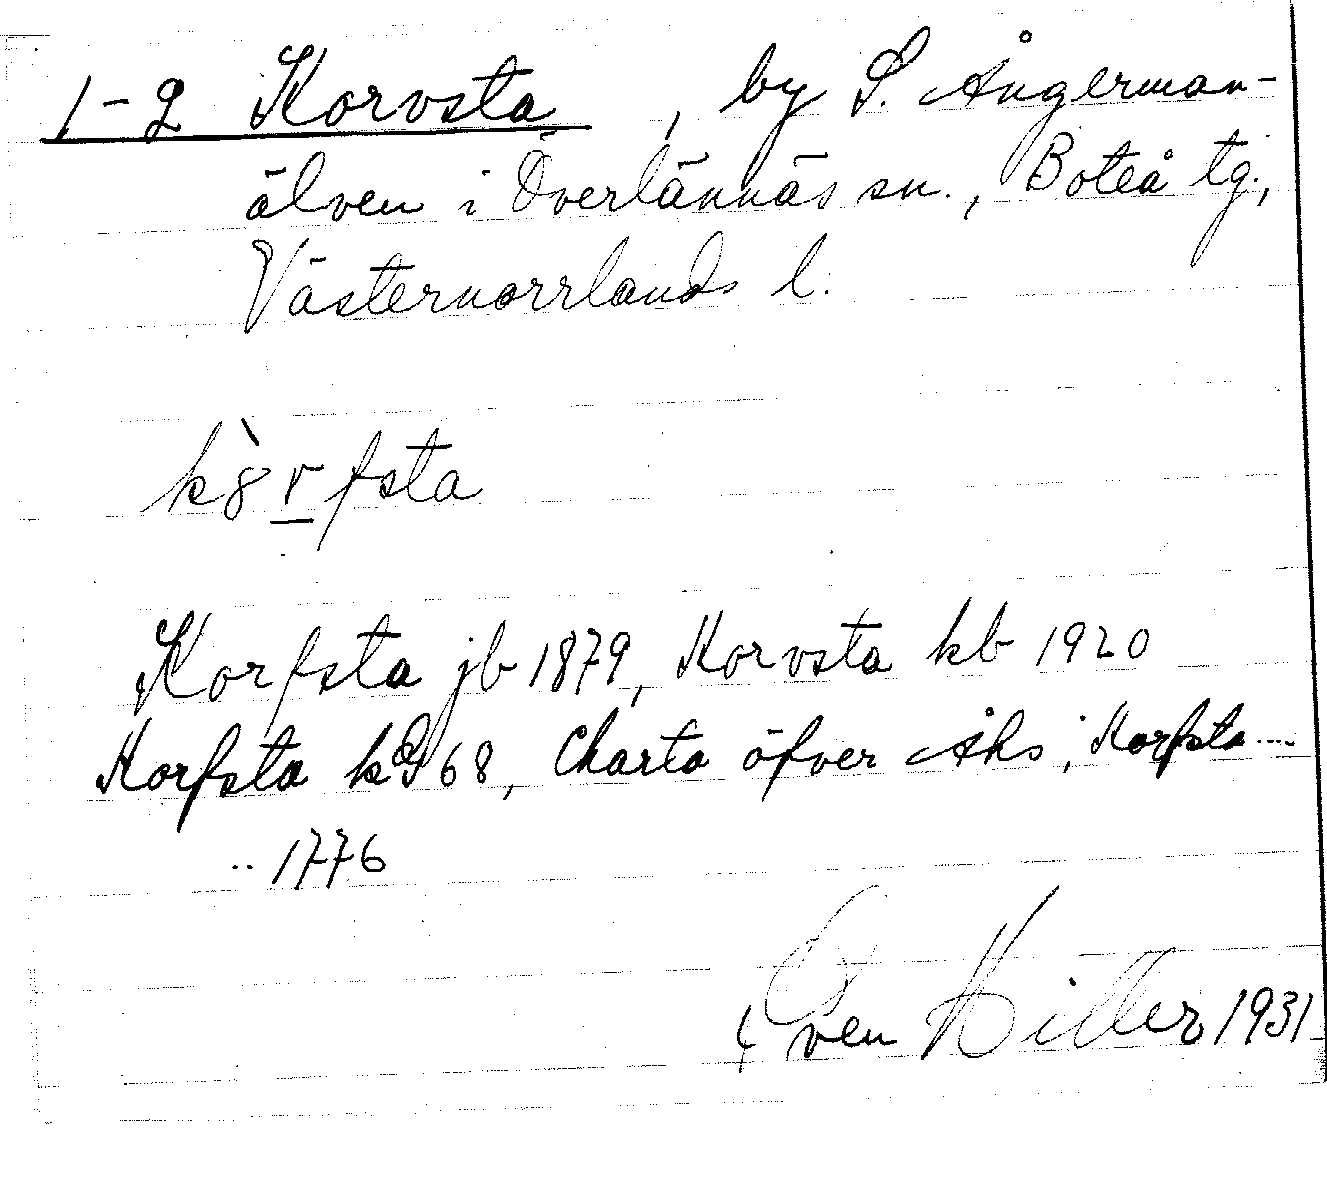 1-2 Korvsta, by S. Ångerman-
älven i Överlännäs sn., Boteå tg.,
Västernorrlands l.
Korfsta jb 1879, Korvsta kb 1920
Korfsta kG 68, Charta öfver Åhs, Korfsta ....
.. 1776
Sven Hitler 1931